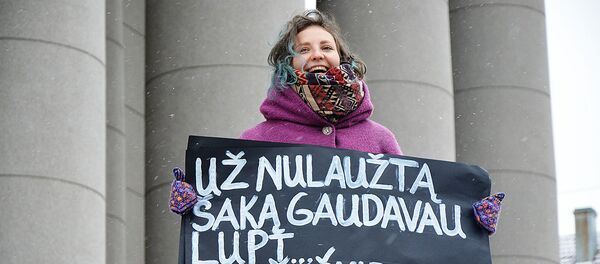 UŽ NULAUŽTĄ
ŠAKĄ GAUDAVAU
LUPT...